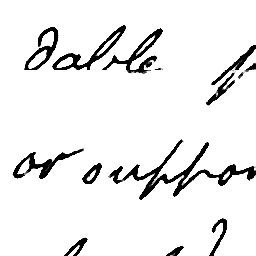 dable
or suppor